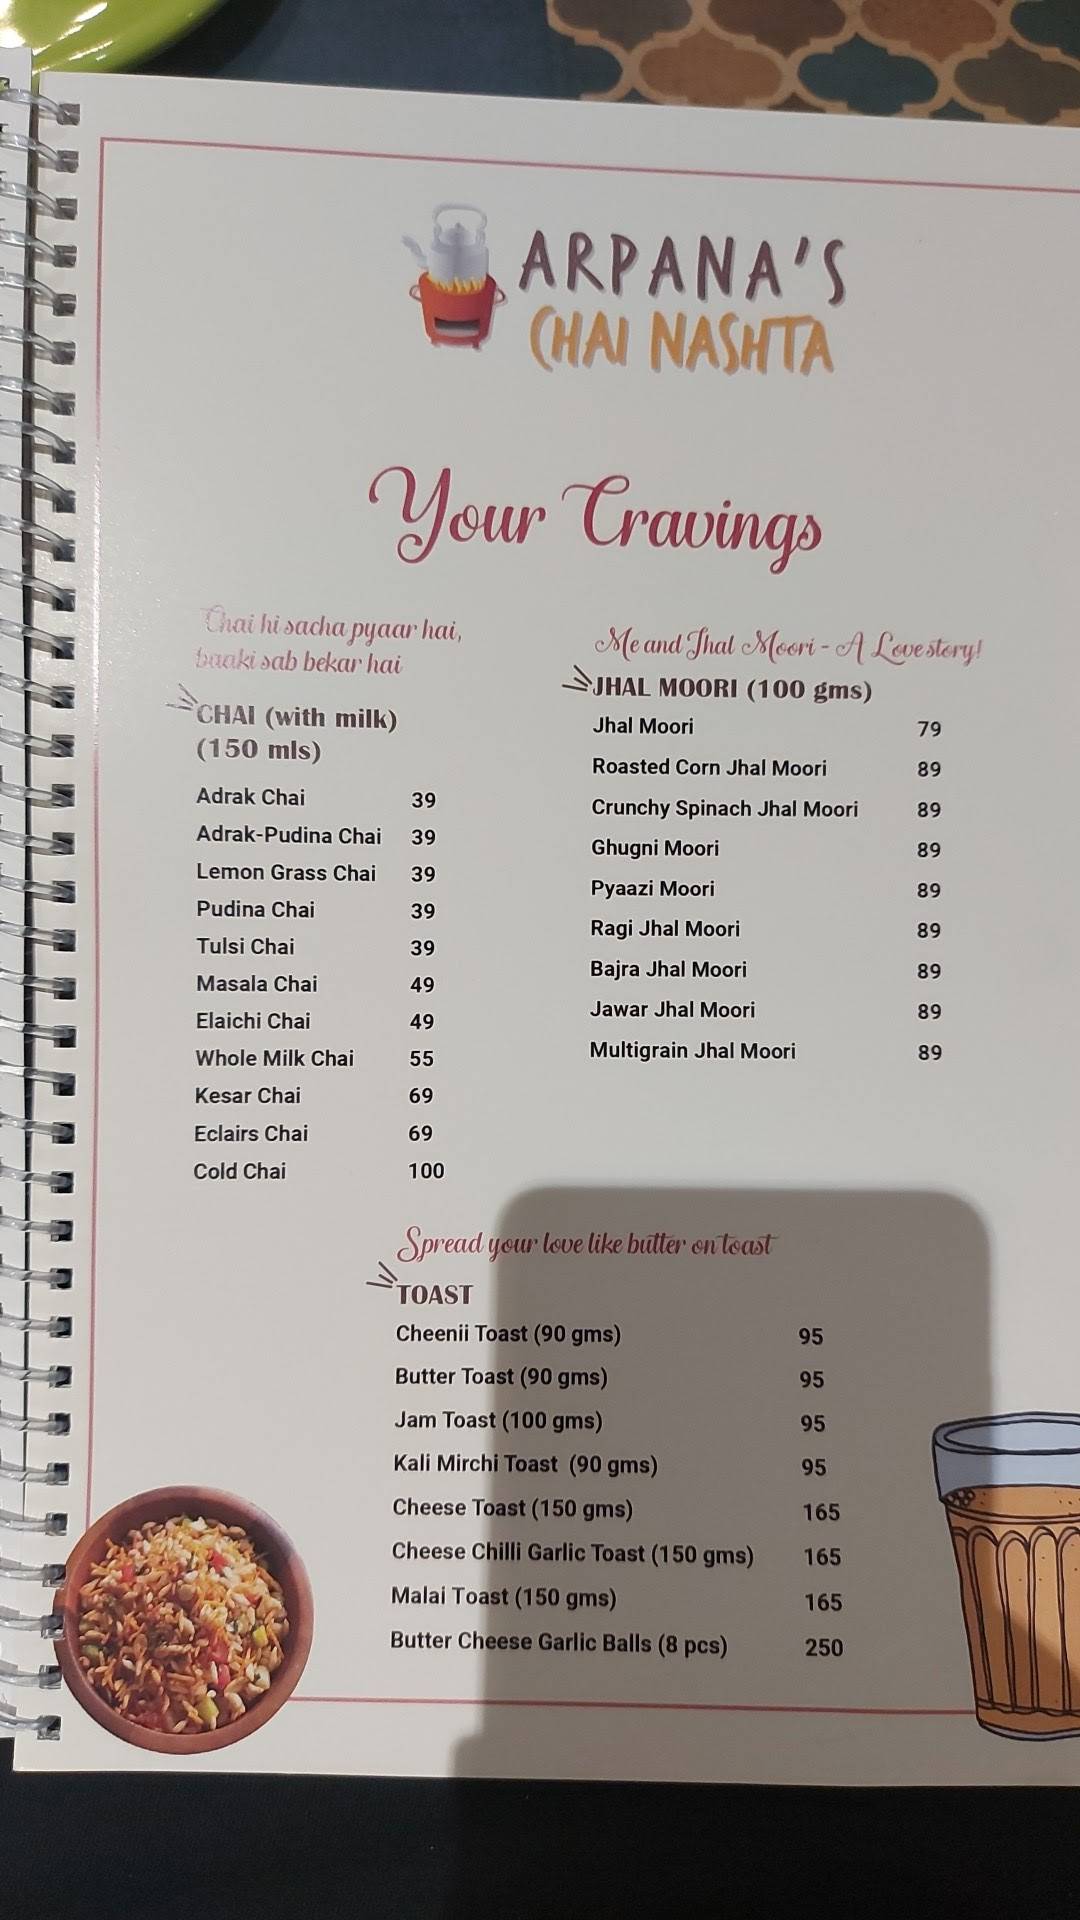 ARPANA'S
CHAI NASHTA
Your Cravings
Chai hi sacha pyaar hai,
baaki sab bekar hai
CHAI (with milk)
(150 mls)
Adrak Chai 39
Adrak-Pudina Chai 39
Lemon Grass Chai 39
Pudina Chai 39
Tulsi Chai 39
Masala Chai 49
Elaichi Chai 49
Whole Milk Chai 55
Kesar Chai 69
Eclairs Chai 69
Cold Chai 100
Me and Jhal Moori - A Love story!
JHAL MOORI (100 gms)
Jhal Moori 79
Roasted Corn Jhal Moori 89
Crunchy Spinach Jhal Moori 89
Ghugni Moori 89
Pyaazi Moori 89
Ragi Jhal Moori 89
Bajra Jhal Moori 89
Jawar Jhal Moori 89
Multigrain Jhal Moori 89
Spread your love like butter on toast
TOAST
Cheenii Toast (90 gms) 95
Butter Toast (90 gms) 95
Jam Toast (100 gms) 95
Kali Mirchi Toast (90 gms) 95
Cheese Toast (150 gms) 165
Cheese Chilli Garlic Toast (150 gms) 165
Malai Toast (150 gms) 165
Butter Cheese Garlic Balls (8 pcs) 250